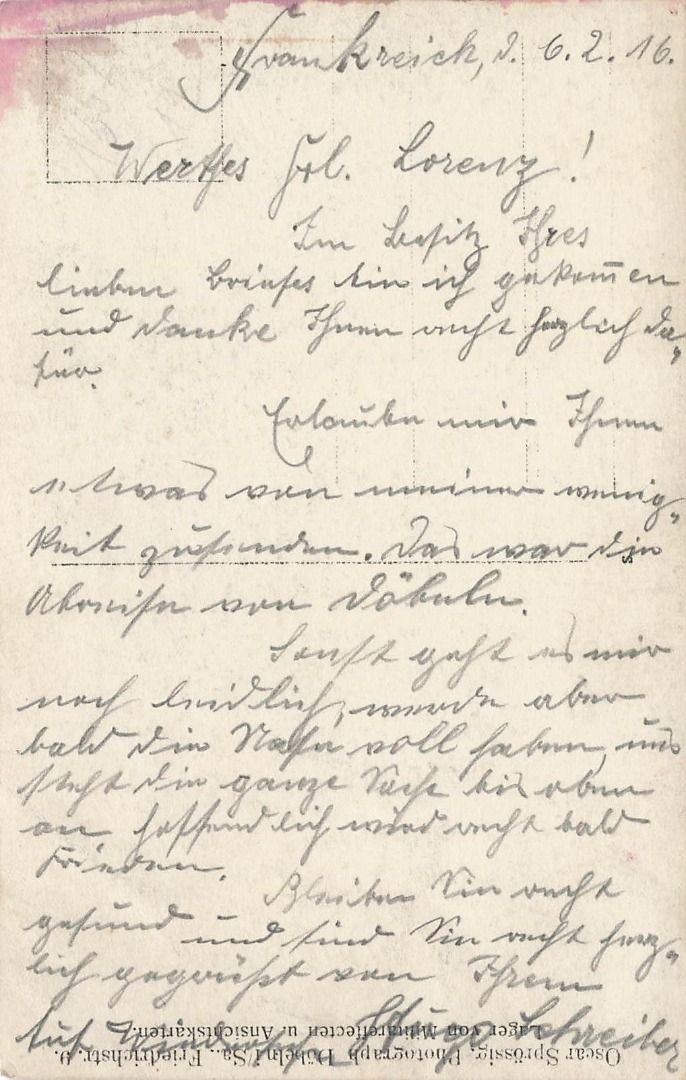 Frankreich, d. 6.2.16.
Werthes Frl. Lorenz!
Im Besitz Ihres
lieben Briefes bin ich gekom̅en
und danke Ihnen recht herzlich da„
für.
Erlaube mir Ihnen
etwas von meiner wenig„
keit zusenden. Das war die
Abreise von Döbeln.
Sonst geht es mir
noch leidlich, werde aber
bald die Nase voll haben, uns
steht die ganze Sache bis oben
an hoffendlich wird recht bald
Frieden.
Bleiben Sie recht
gesund und sind Sie recht herz„
lich gegrüßt von Ihrem
Hugo Schreiber
Auf Wiedersehn
Oscar Sprössig, Photograph, Döbeln i/Sa., Friedrichstr. 9.
Lager von Militäreffecten u Ansichtskarten.